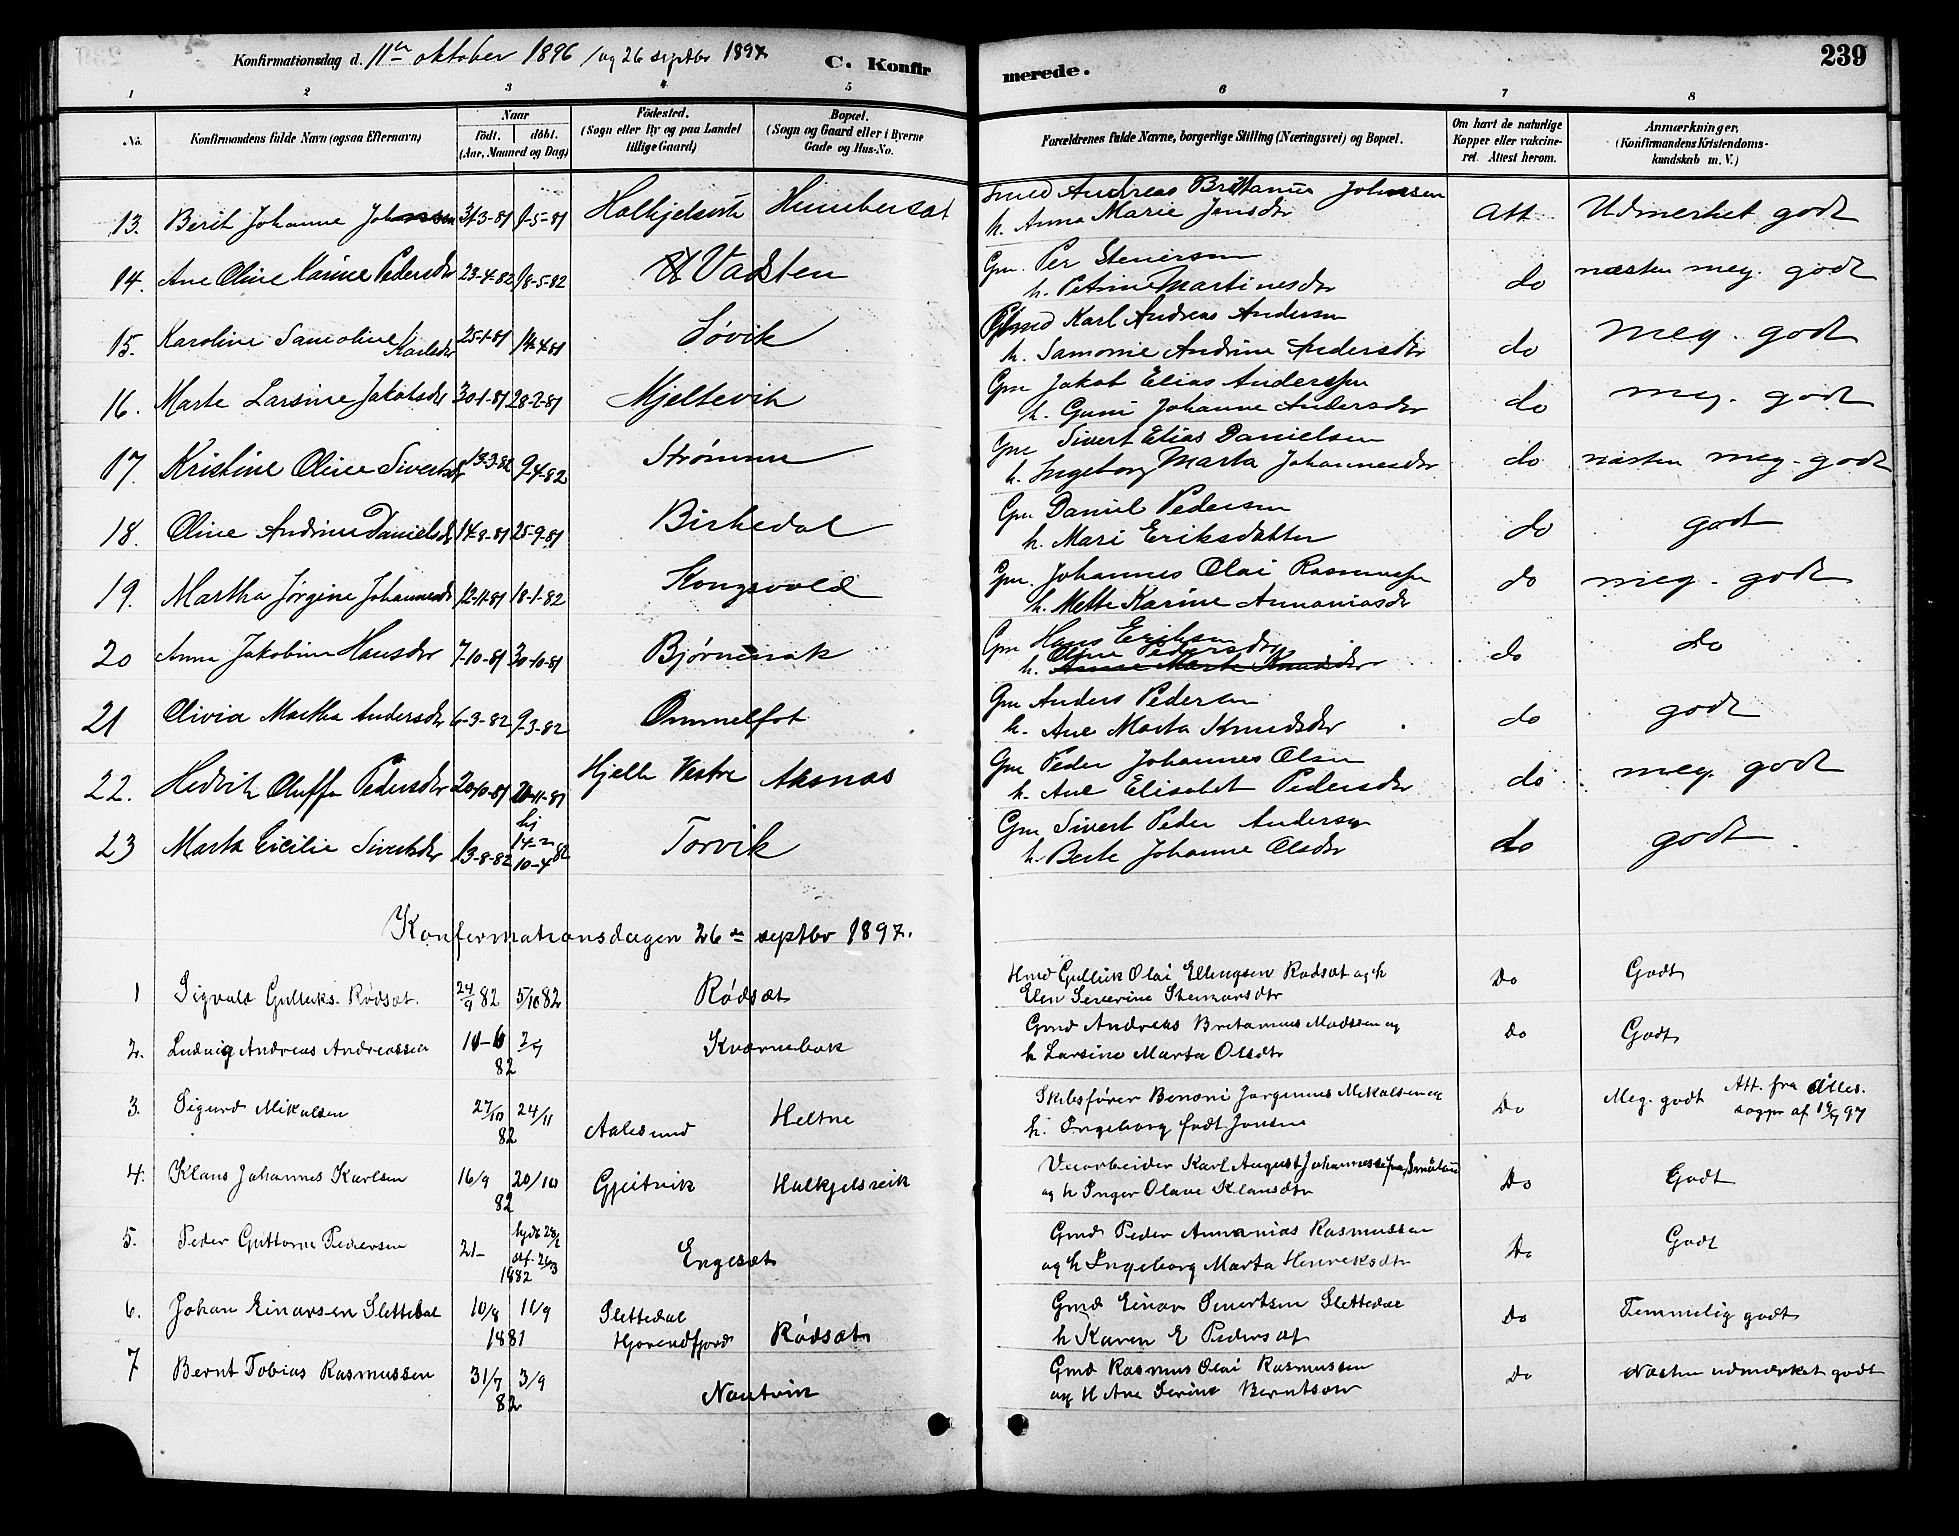 Konfirmationsdag d. 11te oktober 1896 /og 26 septbr 1897 C. Konfir
merede. 239
1 2 3 4 5 6 7 8
No. Konfirmandens fulde Navn (ogsaa Efternavn) Naar födt. döbt. (Aar, Maaned og Dag) Födested. (Sogn eller By og paa Landet tillige Gaard) Bopæl. (Sogn og Gaard eller i Byerne Gade og Hus-No.
Forældrenes fulde Navne, borgerlige Stilling (Næringsvei) og Bopæl. Om havt de naturlige Kopper eller vakcineret. Attest herom. Anmærkninger. (Konfirmandens Kristendomskundskab m. V.)
13. Berit Johanne Johnssen 31-3-81 1-5-81 Halkjelsvik Humbersæt Smed Andreas Brittanus Johnssen
h. Anna Marie Jensdr Att Udmerket godt
14. Ane Oline Karine Pedersdr 23-4-82 18-5-82 Vadsten Gm. Per Stenersen
h. Petrine Martinesdr do næsten meg. godt
15. Karoline Samoline Karlsdr 25-1-81 14-4-81 Søvik Karl Andreas Andersen
h. Samonie Andrine Andersdr do meg. godt
16. Marte Larsine Jakobsdr 30-1-81 28-2-81 Mjeltevik Gm Jakob Elias Anderssen
h. Guni Johanne Andersdr do meg. godt
17. Kristine Oline Sivertsdr 13-3-82 9-4-82 Strømme Gm Sivert Elias Danielsen
h. Ingeborg Marta Johannesdr do næsten meg. godt
18. Oline Andrine Danielsdr 14-8-81 25-9-81 Birkedal Gm Daniel Pedersen
h. Mari Eriksdatter do godt
19. Martha Jørgine Johannesdr 12-11-81 18-1-82 Kongsvold Gm. Johannes Olai Rasmussen
h. Mette Karine Annaniasdr do meg. godt
20 Anna Jakobine Hansdr 7-10-81 30-10-81 Bjørnenak Gm Hans Eriksen
h. Oline Pedersdr do do
21 Olivia Martha Andersdr 6-3-82 9-3-82 Ommelfot Gm Anders Pedersen
h. Ane Marta Knudsdr do godt
22. Hedvik Oluffa Pedersdr 20-10-81 20-11-81 Hjelle Vestre Aasnæs Gm Peder Johannes Olsen
h. Ane Elisabet Pedersdr do meg. godt
23 Marta Cicilie Sivertsdr 13-8-82 hj 14-2 10-4 82 Torvik Gm Sivert Peder Andersen
h. Berte Johanne Olsdr do godt
Konfermationsdagen 26de septbr 1897.
1 Sigvald Gulluks. Rødsæt. 24/9 82 5/10 82 Rødsæt Hmd Gulluk Olai Ellingsen Rødsæt og h
Elen Severine Steinarsdtr Do Godt
2. Ludvig Andreas Andreassen 11-6 82 2/7 Kvernebak Gmd Andreas Britanus Madssen og
h Larsine Marta Olsdtr Do Godt
3. Sigurd Mikalsen 27/10 82 24/11 Aalesund Heltne Skibsfører Benoni Jørgenus Mikalsen og
h. Ingeborg født Jensen Do Meg. godt Att. fra
sogpr af 19/7 97
4. Klaus Johannes Karlsen 16/9 82 20/10 Gjeitvik Halkjelsvik Veiarbeider Karl August Johannessen fra Småland
og h Inger Olave Klausdtr Do Godt
5. Peder Guttorm Pedersen 21- hjdb 28/2 stf. 26/3 1882 Engesæt Gmd Peder Annanias Rasmussen
og h Ingeborg Marta Henriksdtr Do Godt
6. Johan Einarsen Slettedal 10/8 11/9 1881 Slettedal Hjørendfjord Rødsæt Gmd Einar Sivertsen Slettedal
h Karen E Pedersdt Do Temmelig godt
7 Bernt Tobias Rasmussen 31/7 82 3/9 Nautvik Gmd Rasmus Olai Rasmussen
og h Ane Serine Berntsdtr do Næsten udmærket godt